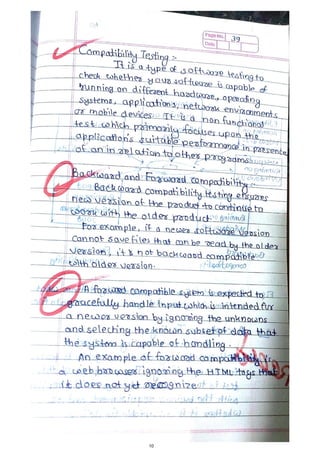 Page No. 39
Date
Compatibility Testing :-
It is a type of software testing to
check whether your software is capable of
running on different hardware, operating
systems, applications, network environments
or mobile devices. It is a non functional
test which primarily focuses upon the
application's suitable performance in presence
of an in relation to other programs.
Backward and Forward compatibility :-
Backward compatibility testing ensures
new version of the product to continue to
work with the older product.
For example, if a newer software version
cannot save files that can be read by the older
version, it is not backward compatible
with older version.
A forward compatible system is expected to
gracefully handle input which is intended for
a newer version by ignoring the unknowns
and selecting the known subset of data that
the system is capable of handling.
An example of forward compatibility is
a web browser ignoring the HTML tags that
it does not yet recognize
10